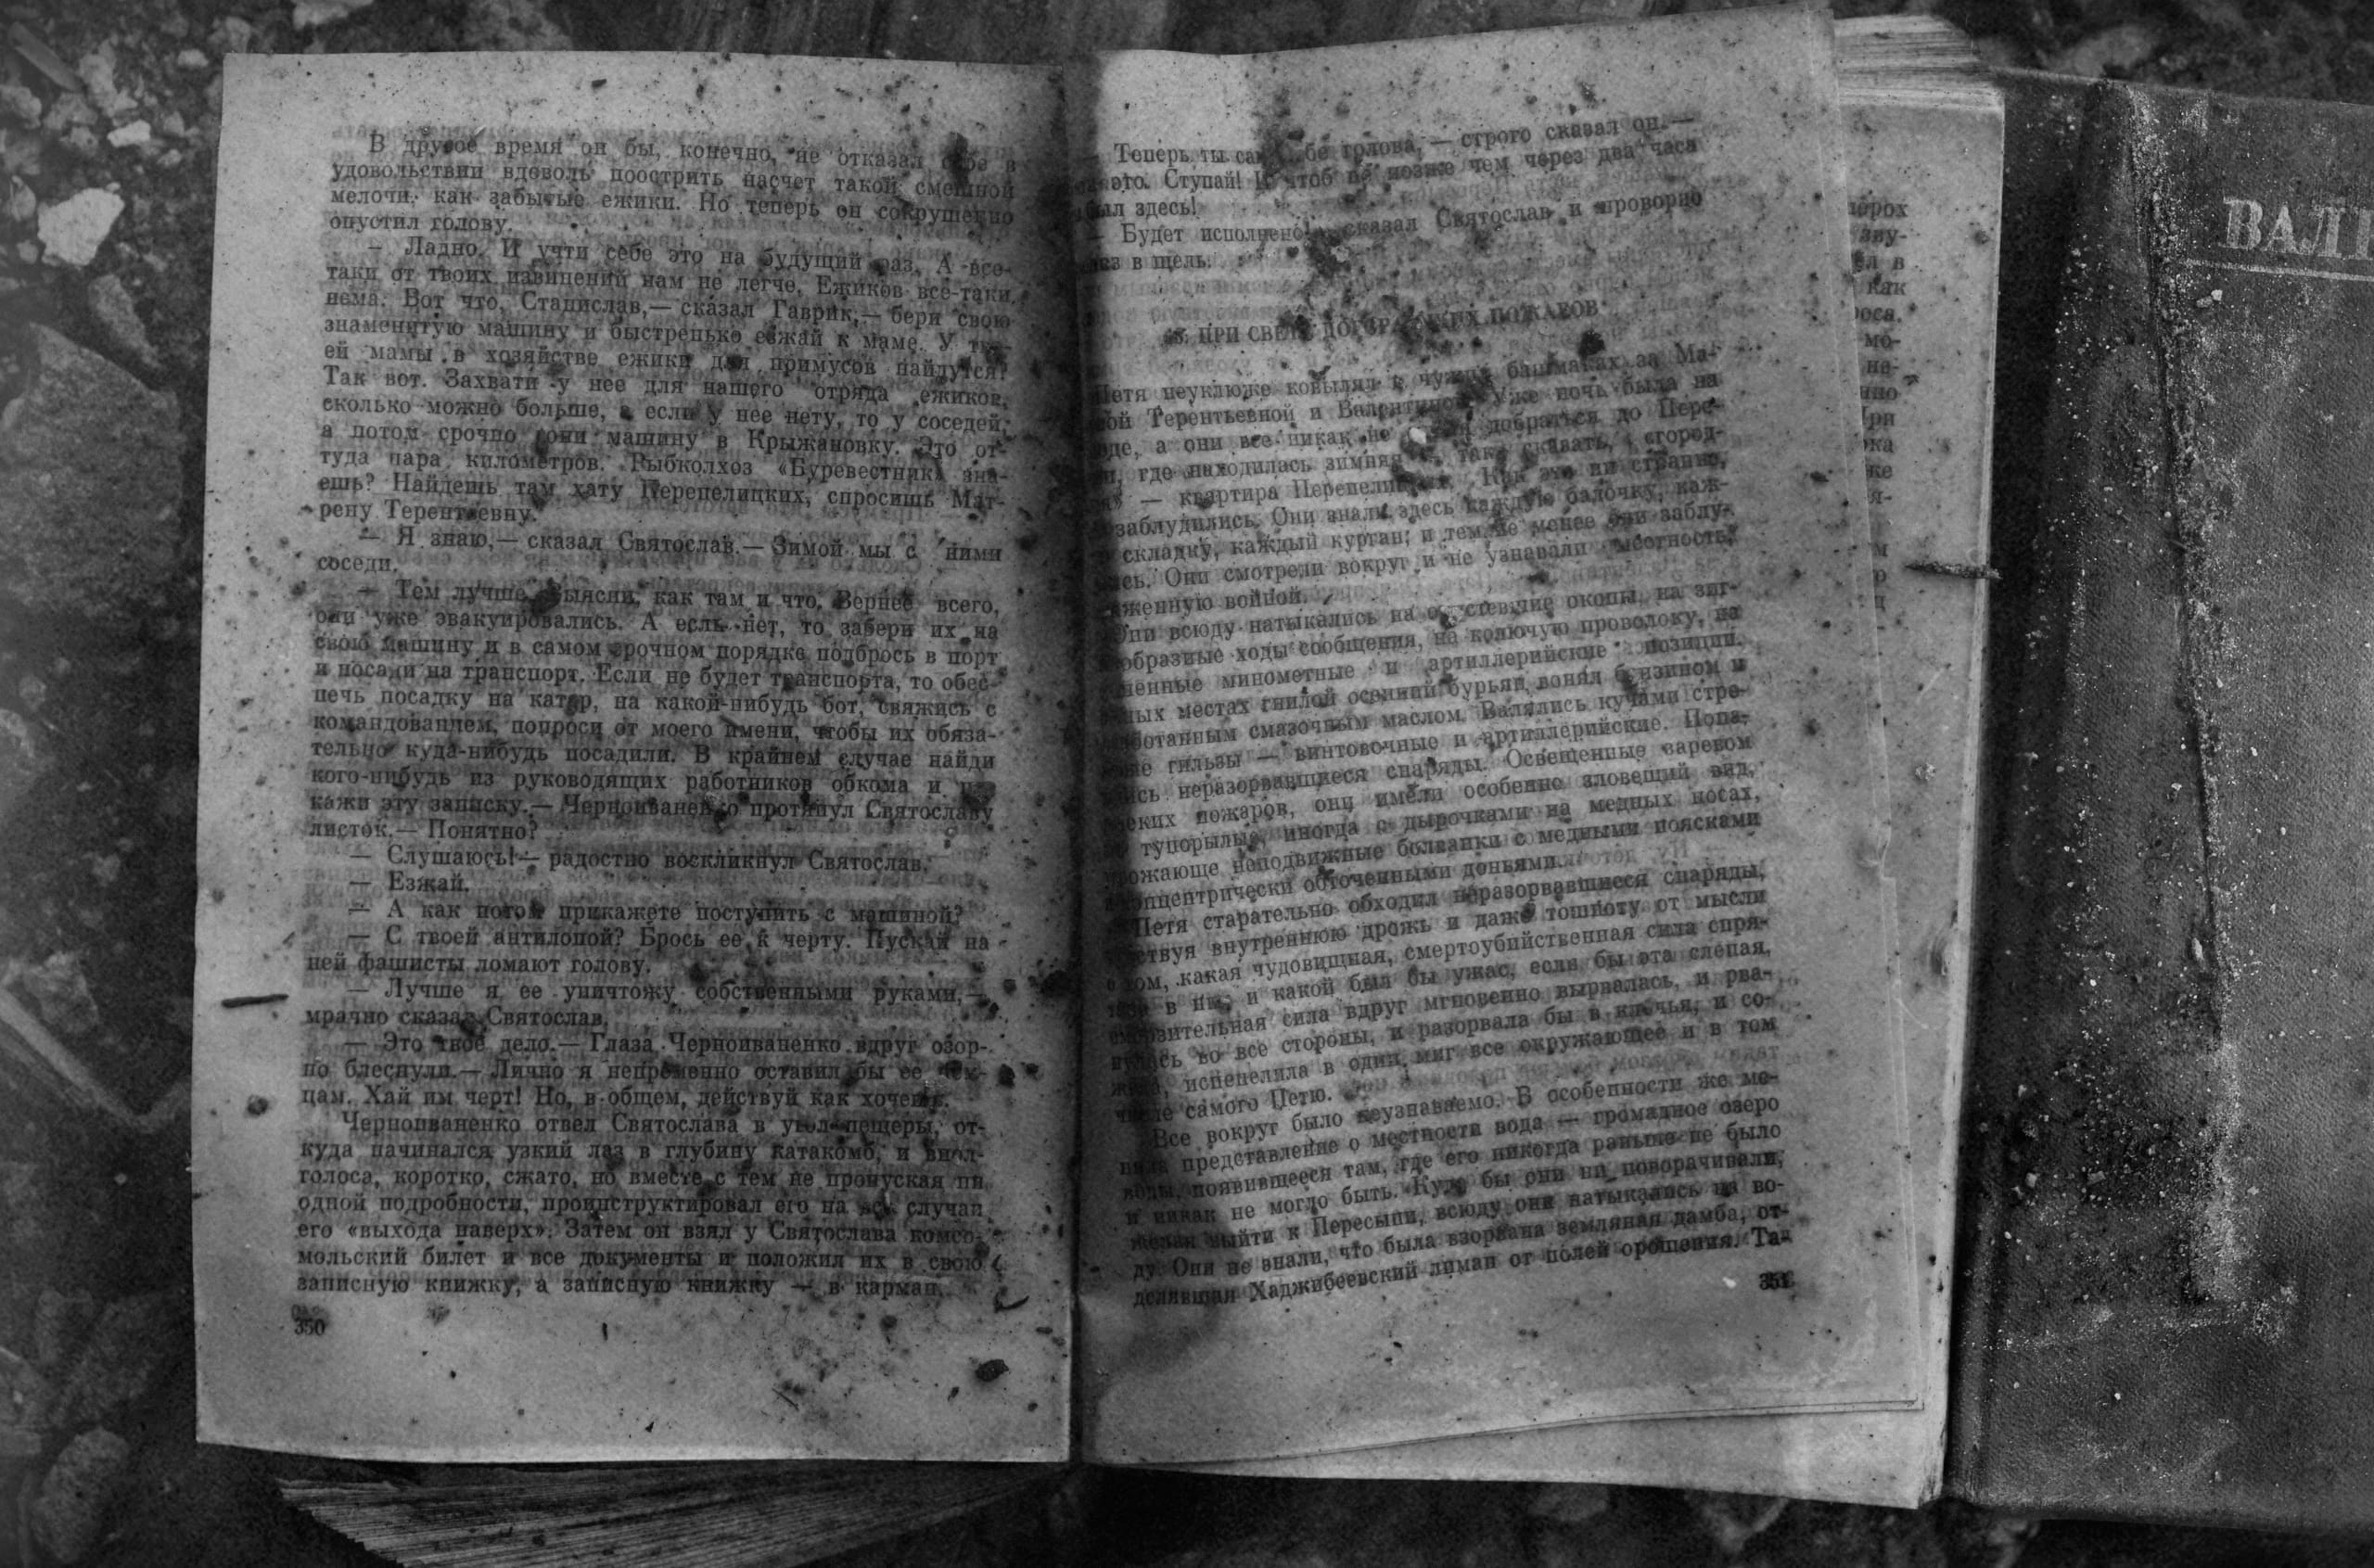 В другое время он бы, конечно, не отказал себе в
удовольствии вдоволь поострить насчет такой смешной
мелочи, как забытые ежики. Но теперь он сокрушенно
опустил голову.
— Ладно. И учти себе это на будущий раз. А все-
таки от твоих извинений нам не легче. Ежиков все-таки
нема. Вот что, Станислав,— сказал Гаврик,— бери свою
знаменитую машину и быстренько езжай к маме. У тво-
ей мамы в хозяйстве ежики для примусов найдутся?
Так вот. Захвати у нее для нашего отряда ежиков,
сколько можно больше, а если у нее нету, то у соседей,
а потом срочно гони машину в Крыжановку. Это от-
туда пара километров. Рыбколхоз «Буревестник» зна-
ешь? Найдешь там хату Перепелицких, спросишь Мат-
рену Терентьевну.
— Я знаю,— сказал Святослав.— Зимой мы с ними
соседи.
— Тем лучше. Выясни, как там и что. Вернее всего,
они уже эвакуировались. А если нет, то забери их на
свою машину и в самом срочном порядке подбрось в порт
и посади на транспорт. Если не будет транспорта, то обес-
печь посадку на катер, на какой-нибудь бот, свяжись с
командованием, попроси от моего имени, чтобы их обяза-
тельно куда-нибудь посадили. В крайнем случае найди
кого-нибудь из руководящих работников обкома и по-
кажи эту записку.— Черноиваненко протянул Святославу
листок.— Понятно?
— Слушаюсь!— радостно воскликнул Святослав.
— Езжай.
— А как потом прикажете поступить с машиной?
— С твоей антилопой? Брось ее к черту. Пускай на
ней фашисты ломают голову.
— Лучше я ее уничтожу собственными руками,—
мрачно сказал Святослав.
— Это твое дело.— Глаза Черноиваненко вдруг озор-
но блеснули.— Лично я непременно оставил бы ее нем-
цам. Хай им черт! Но, в общем, действуй как хочешь.
Черноиваненко отвел Святослава в угол пещеры, от-
куда начинался узкий лаз в глубину катакомб, и впол-
голоса, коротко, сжато, но вместе с тем не пропуская ни
одной подробности, проинструктировал его на все случаи
его «выхода наверх». Затем он взял у Святослава комсо-
мольский билет и все документы и положил их в свою
записную книжку, а записную книжку — в карман.
350
— Теперь ты сам себе голова,— строго сказал он.—
это. Ступай! И чтоб не позже чем через два часа
был здесь!
— Будет исполнено!— сказал Святослав и проворно
в щель.
ПРИ СВЕТЕ ДОГОРАЮЩИХ ПОЖАРОВ
Петя неуклюже ковылял в чужих башмаках за Ма-
Терентьевной и Валентиной. Уже ночь была на
а они все никак не добраться до Пере-
где находилась зимняя — так сказать, «город-
— квартира Перепелицких. Как это ни странно,
заблудились. Они знали здесь каждую балочку, каж-
складку, каждый курган; и тем не менее они заблу-
Они смотрели вокруг и не узнавали местность,
войной.
Они всюду натыкались на опустевшие окопы, на зиг-
образные ходы сообщения, на колючую проволоку, на
минометные и артиллерийские позиции.
местах гнилой осенний бурьян вонял бензином и
смазочным маслом. Валялись кучами стре-
гильзы — винтовочные и артиллерийские. Попа-
неразорвавшиеся снаряды. Освещенные заревом
пожаров, они имели особенно зловещий вид,
тупорылые, иногда с дырочками на медных носах,
угрожающе неподвижные болванки с медными поясками
и концентрически обточенными доньями.
Петя старательно обходил неразорвавшиеся снаряды,
чувствуя внутреннюю дрожь и даже тошноту от мысли
о том, какая чудовищная, смертоубийственная сила спря-
в них и какой был бы ужас, если бы эта слепая,
сила вдруг мгновенно вырвалась, и рва-
нулась во все стороны, и разорвала бы в клочья, и со-
жгла, испепелила в один миг все окружающее и в том
числе самого Петю.
Все вокруг было неузнаваемо. В особенности же ме-
няла представление о местности вода — громадное озеро
воды, появившееся там, где его никогда раньше не было
и никак не могло быть. Куда бы они ни поворачивали,
желая выйти к Пересыпи, всюду они натыкались на во-
ду. Они не знали, что была взорвана земляная дамба, от-
делявшая Хаджибеевский лиман от полей орошения. Та-
351
орох
зву-
в
как
роса.
мо-
не-
ВАЛ